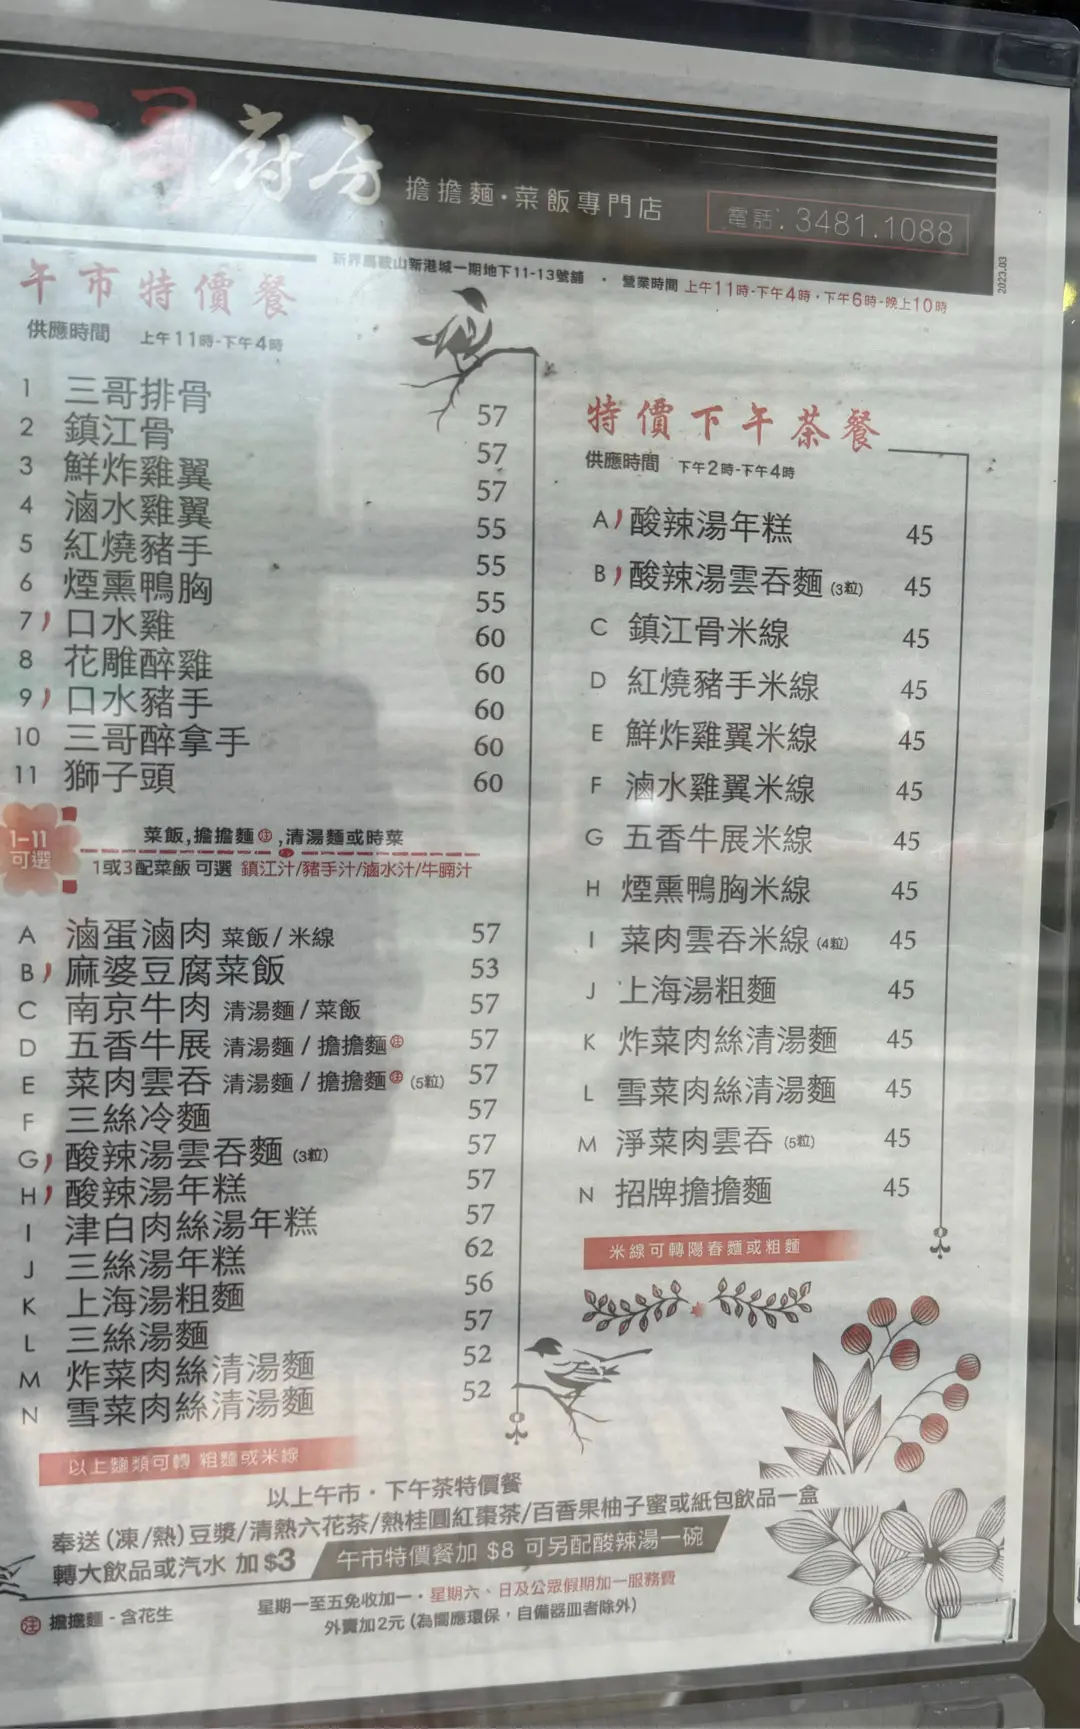 三哥廚房
擔擔麵·菜飯專門店
電話：3481.1088
2023.03
新界馬鞍山新港城一期地下11-13號舖 · 營業時間 上午11時-下午4時·下午6時-晚上10時
午市特價餐
供應時間 上午11時-下午4時
1 三哥排骨 57
2 鎮江骨 57
3 鮮炸雞翼 57
4 滷水雞翼 55
5 紅燒豬手 55
6 煙熏鴨胸 55
7 口水雞 60
8 花雕醉雞 60
9 口水豬手 60
10 三哥醉拿手 60
11 獅子頭 60
1-11
可選
菜飯,擔擔麵㊟,清湯麵或時菜
1或3配菜飯 可選 鎮江汁/豬手汁/滷水汁/牛腩汁
A 滷蛋滷肉 菜飯/米線 57
B 麻婆豆腐菜飯 53
C 南京牛肉 清湯麵/菜飯 57
D 五香牛展 清湯麵/擔擔麵㊟ 57
E 菜肉雲吞 清湯麵/擔擔麵㊟ (5粒) 57
F 三絲冷麵 57
G 酸辣湯雲吞麵 (3粒) 57
H 酸辣湯年糕 57
I 津白肉絲湯年糕 57
J 三絲湯年糕 62
K 上海湯粗麵 56
L 三絲湯麵 57
M 炸菜肉絲清湯麵 52
N 雪菜肉絲清湯麵 52
以上麵類可轉 粗麵或米線
特價下午茶餐
供應時間 下午2時-下午4時
A 酸辣湯年糕 45
B 酸辣湯雲吞麵 (3粒) 45
C 鎮江骨米線 45
D 紅燒豬手米線 45
E 鮮炸雞翼米線 45
F 滷水雞翼米線 45
G 五香牛展米線 45
H 煙熏鴨胸米線 45
I 菜肉雲吞米線 (4粒) 45
J 上海湯粗麵 45
K 炸菜肉絲清湯麵 45
L 雪菜肉絲清湯麵 45
M 淨菜肉雲吞 (5粒) 45
N 招牌擔擔麵 45
米線可轉陽春麵或粗麵
以上午市·下午茶特價餐
奉送(凍/熱)豆漿/清熱六花茶/熱桂圓紅棗茶/百香果柚子蜜或紙包飲品一盒
轉大飲品或汽水 加$3
午市特價餐加 $8 可另配酸辣湯一碗
㊟ 擔擔麵-含花生
星期一至五免收加一·星期六、日及公眾假期加一服務費
外賣加2元(為響應環保，自備器皿者除外)